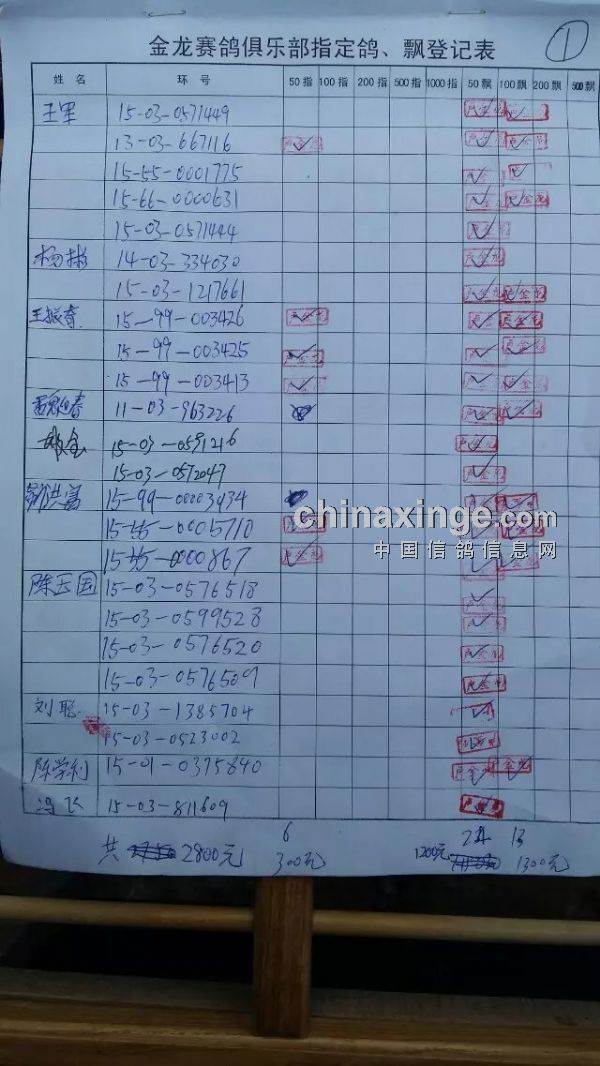 ①
金龙赛鸽俱乐部指定鸽、飘登记表
姓名 环号 50指 100指 200指 500指 1000指 50飘 100飘 200飘 500飘
王军 15-03-0571449
13-03-667116
15-55-0001775
15-66-0000631
15-03-0571444
杨彬 14-03-334030
15-03-1217661
王振奇 15-99-003426
15-99-003425
15-99-003413
11-03-963226
15-03-0591216
15-03-0572047
洪富 15-99-00003434
15-55-0005710
15-55-0000867
陈玉国 15-03-0576518
15-03-0599528
15-03-0576520
15-03-0576509
刘聪 15-03-1385704
15-03-0523002
陈学利 15-01-0375840
冯飞 15-03-811609
6 24 13
共 2800元 300元 1200元 1300元
chinaxinge.com
中国信鸽信息网